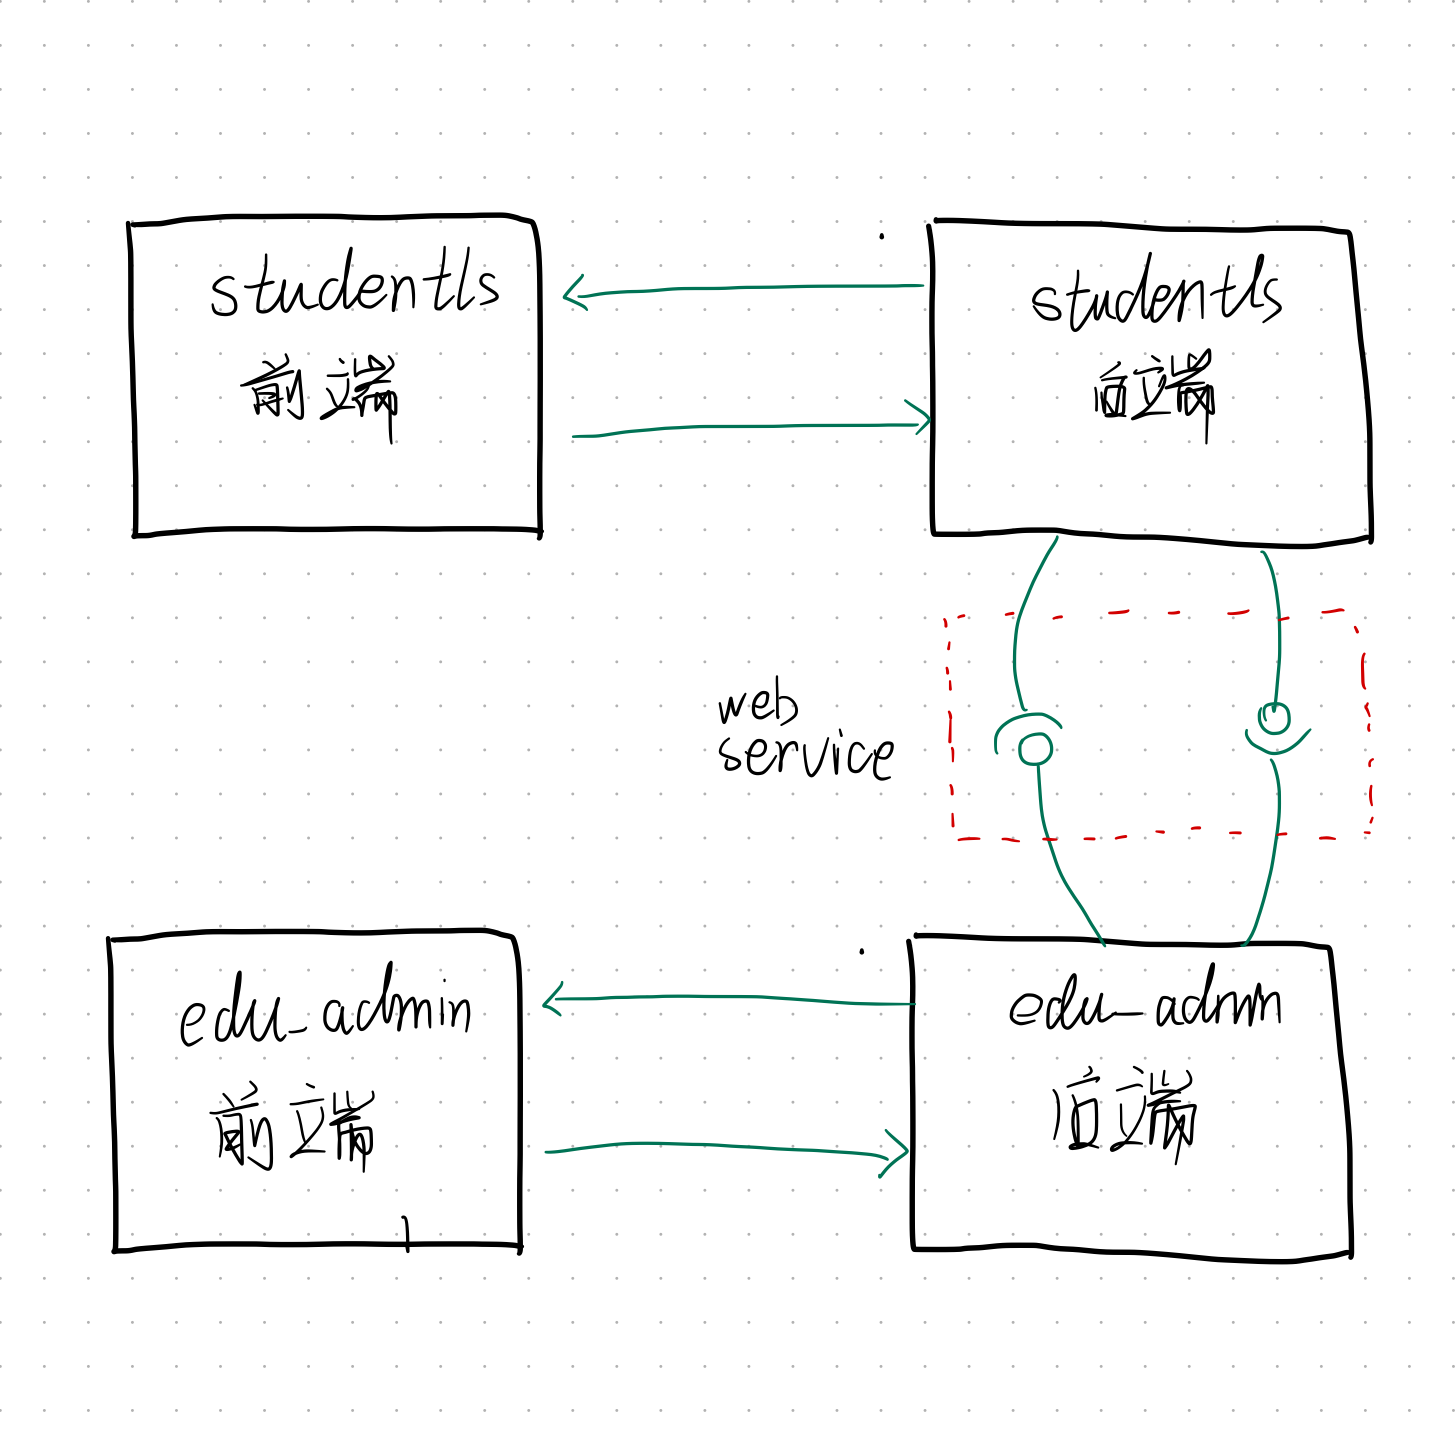 studentls
前端
studentls
后端
web
service
edu_admin
前端
edu_admin
后端